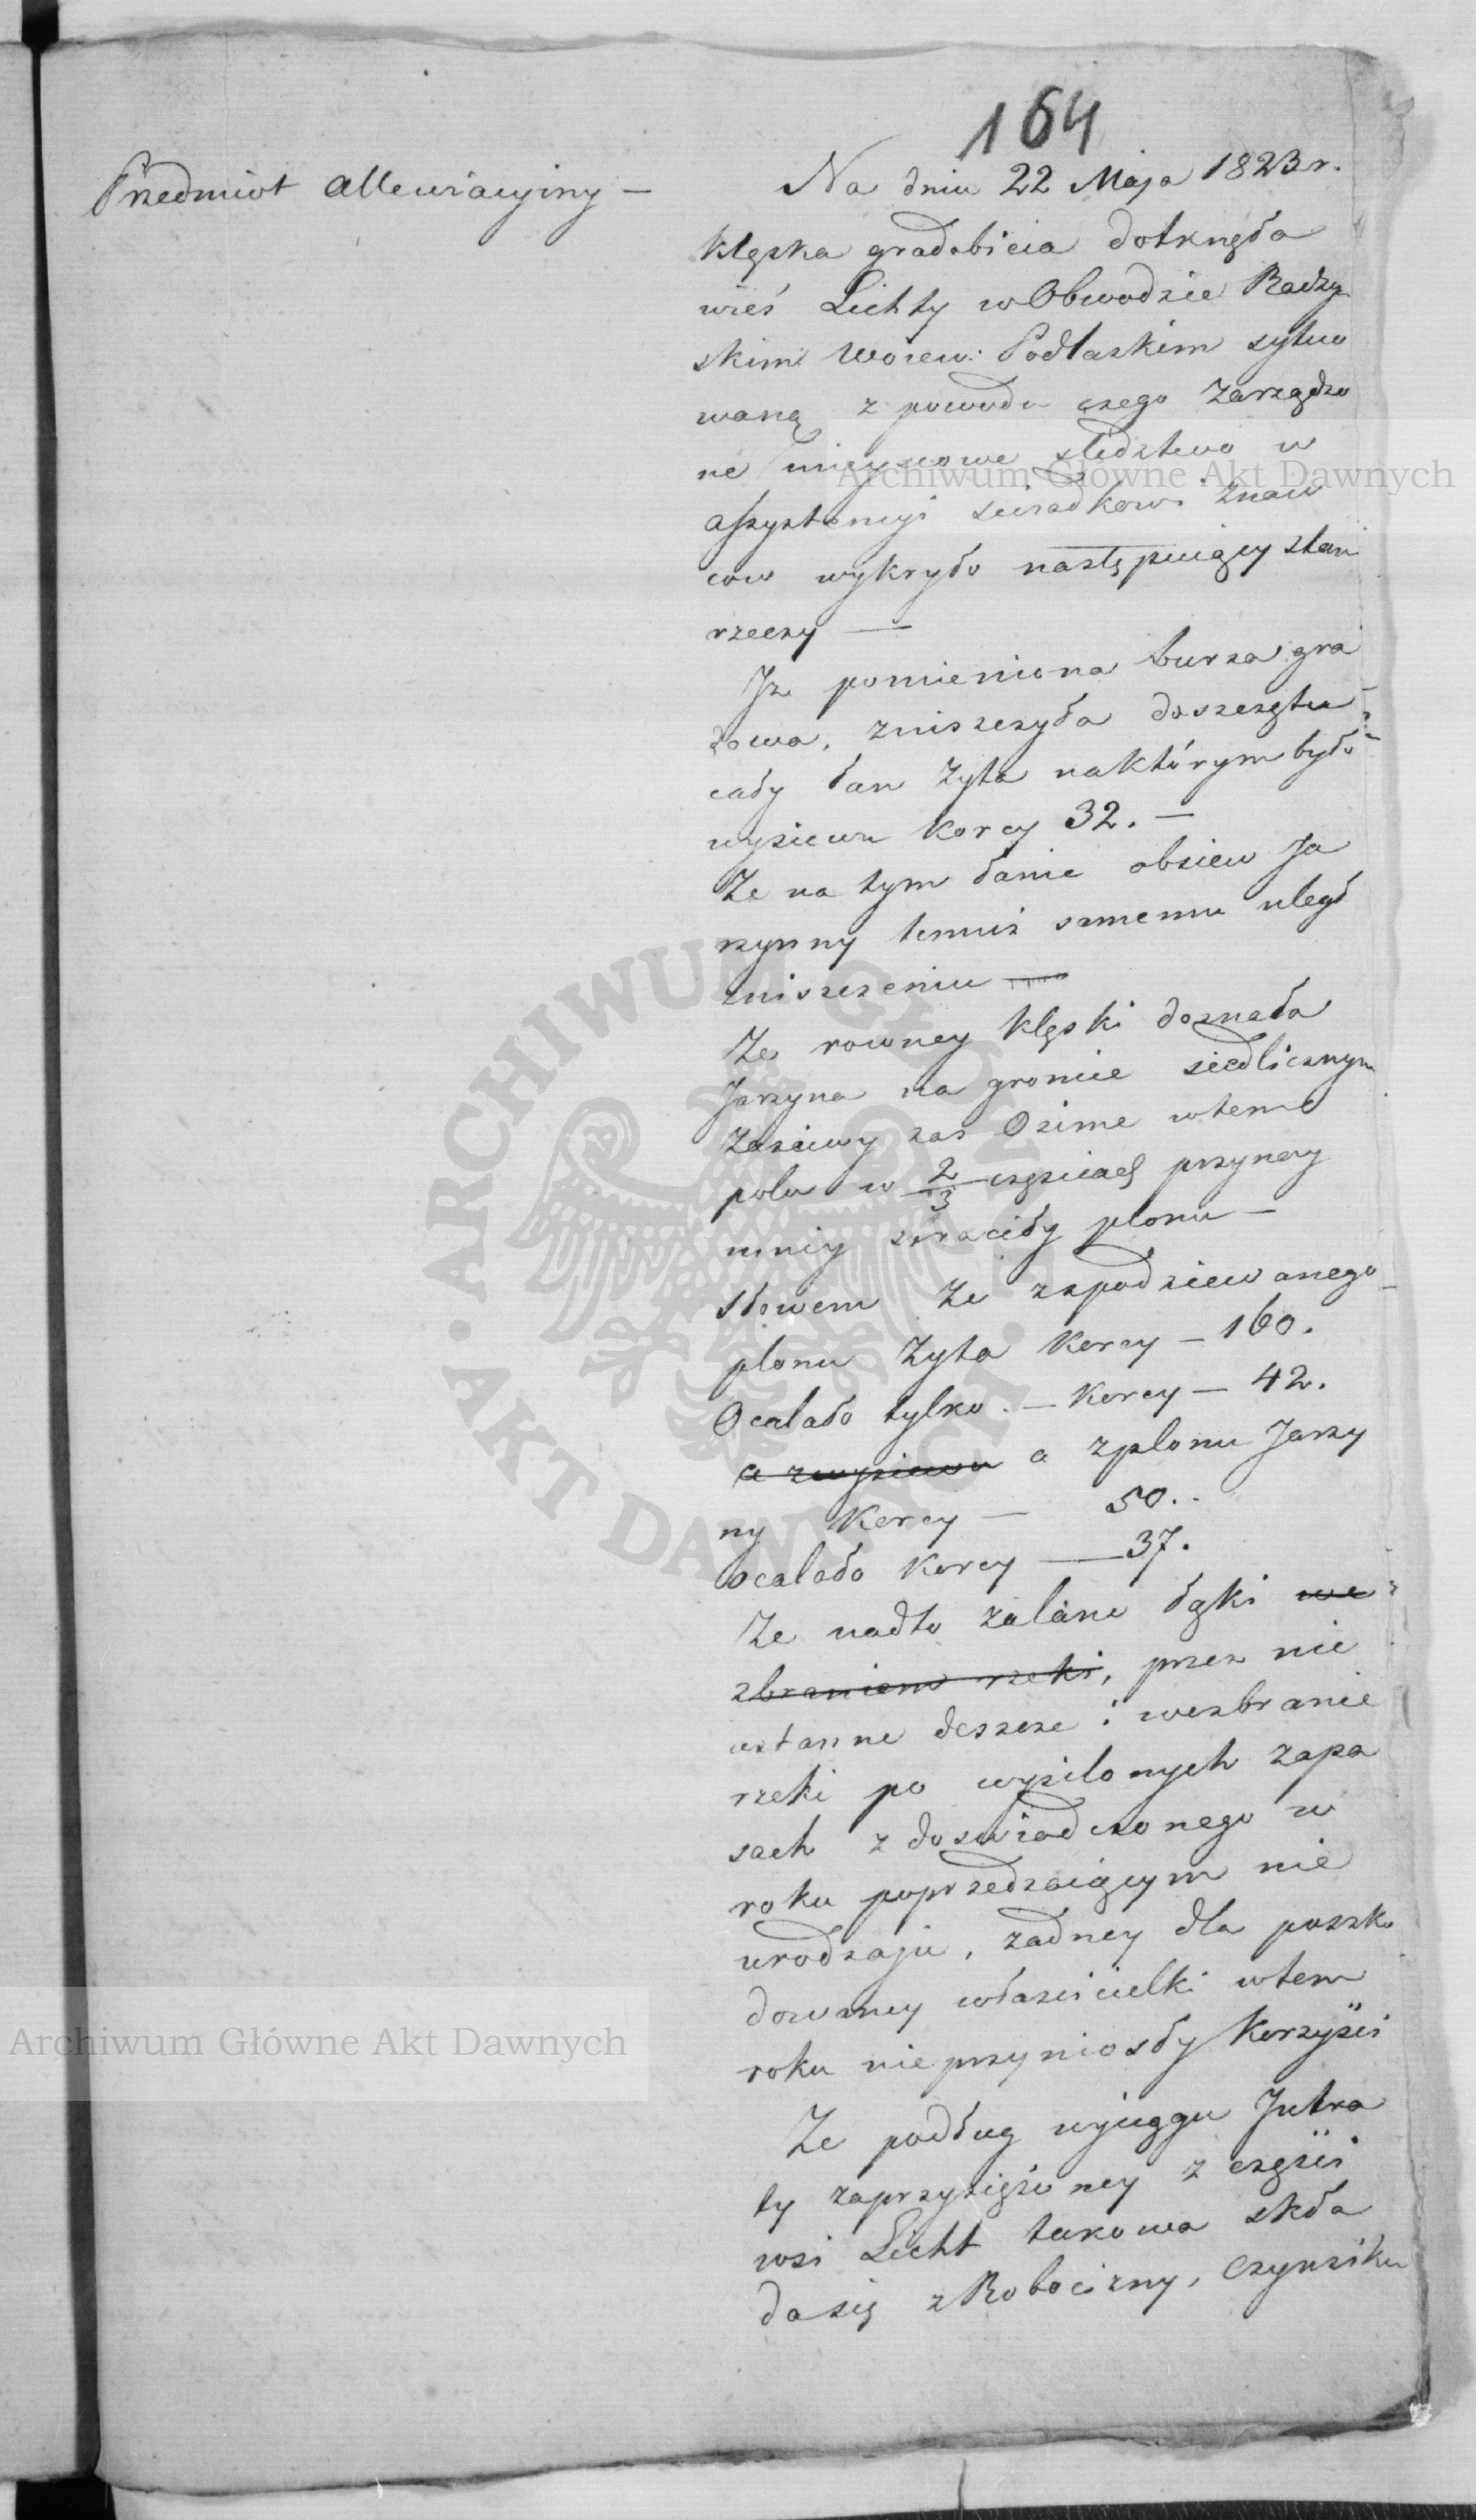 164
Przedmiot allewiacyiny —
Na dniu 22 Maja 1823 r.
klęska gradobicia dotknęła
wieś Lichty w Obwodzie Radzyn
skim Woiew: Podlaskim sytuo
waną z powodu czego zarządzo
ne mieyscowe sledztwo w
assystencyi swiadkow znaw
cow wykryło następuiący stan
rzeczy —
Jż pomieniona burza gra
dowa, zniszczyła doszczętu
cały łan żyta na którym było
wysiewu korcy 32. —
Że na tym łanie obsiew Ja
rzynny temuż samemu uległ
zniszczeniu —
Że rowney klęski doznała
Jarzyna na gronie siedlicznym
zasiewy zas Ozime w tem
polu w 2/3 częsciach przynay
mniey straciły plonu —
słowem że zspodziewanego
plonu żyta korcy — 160.
Ocalało tylko. — korcy — 42.
a zwysiewu a zplonu Jarzy
ny korcy — 50..
ocalało korcy — 37.
Że nadto zalane łąki we
zbraniem rzeki, przez nie
ustanne deszcze i wezbranie
rzeki po wysilonych zapa
sach z doswiadczonego w
roku poprzedzaiącym nie
urodzaju, żadney dla poszko
dowaney włascicielki w tem
roku nie przyniosły korzyści
Że podług wyciągu Jntra
ty zaprzysiężoney z części
wsi Licht takowa skła
da się z Robocizny, Czynsiku
Archiwum Główne Akt Dawnych
ARCHIWUM GŁÓWNE · AKT DAWNYCH ·
Archiwum Główne Akt Dawnych